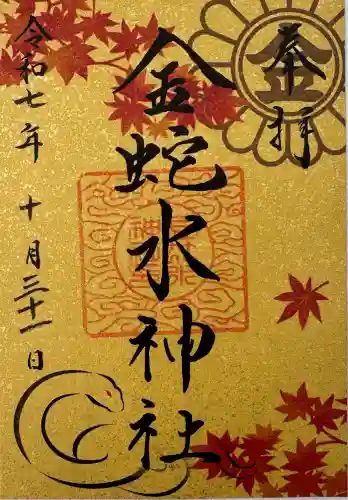 奉拝
金蛇水神社
令和七年十月三十一日